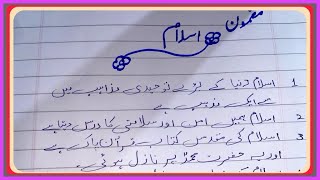 مضمون
اسلام
1 اسلام دنیا کے بڑے توحیدی مذاہب میں
سے ایک مذہب ہے
2 اسلام ہمیں امن اور سلامتی کا درس دیتا ہے
3 اسلام کی مقدس کتاب قرآن پاک ہے
اور یہ حضرت محمدؐ پر نازل ہوئی۔